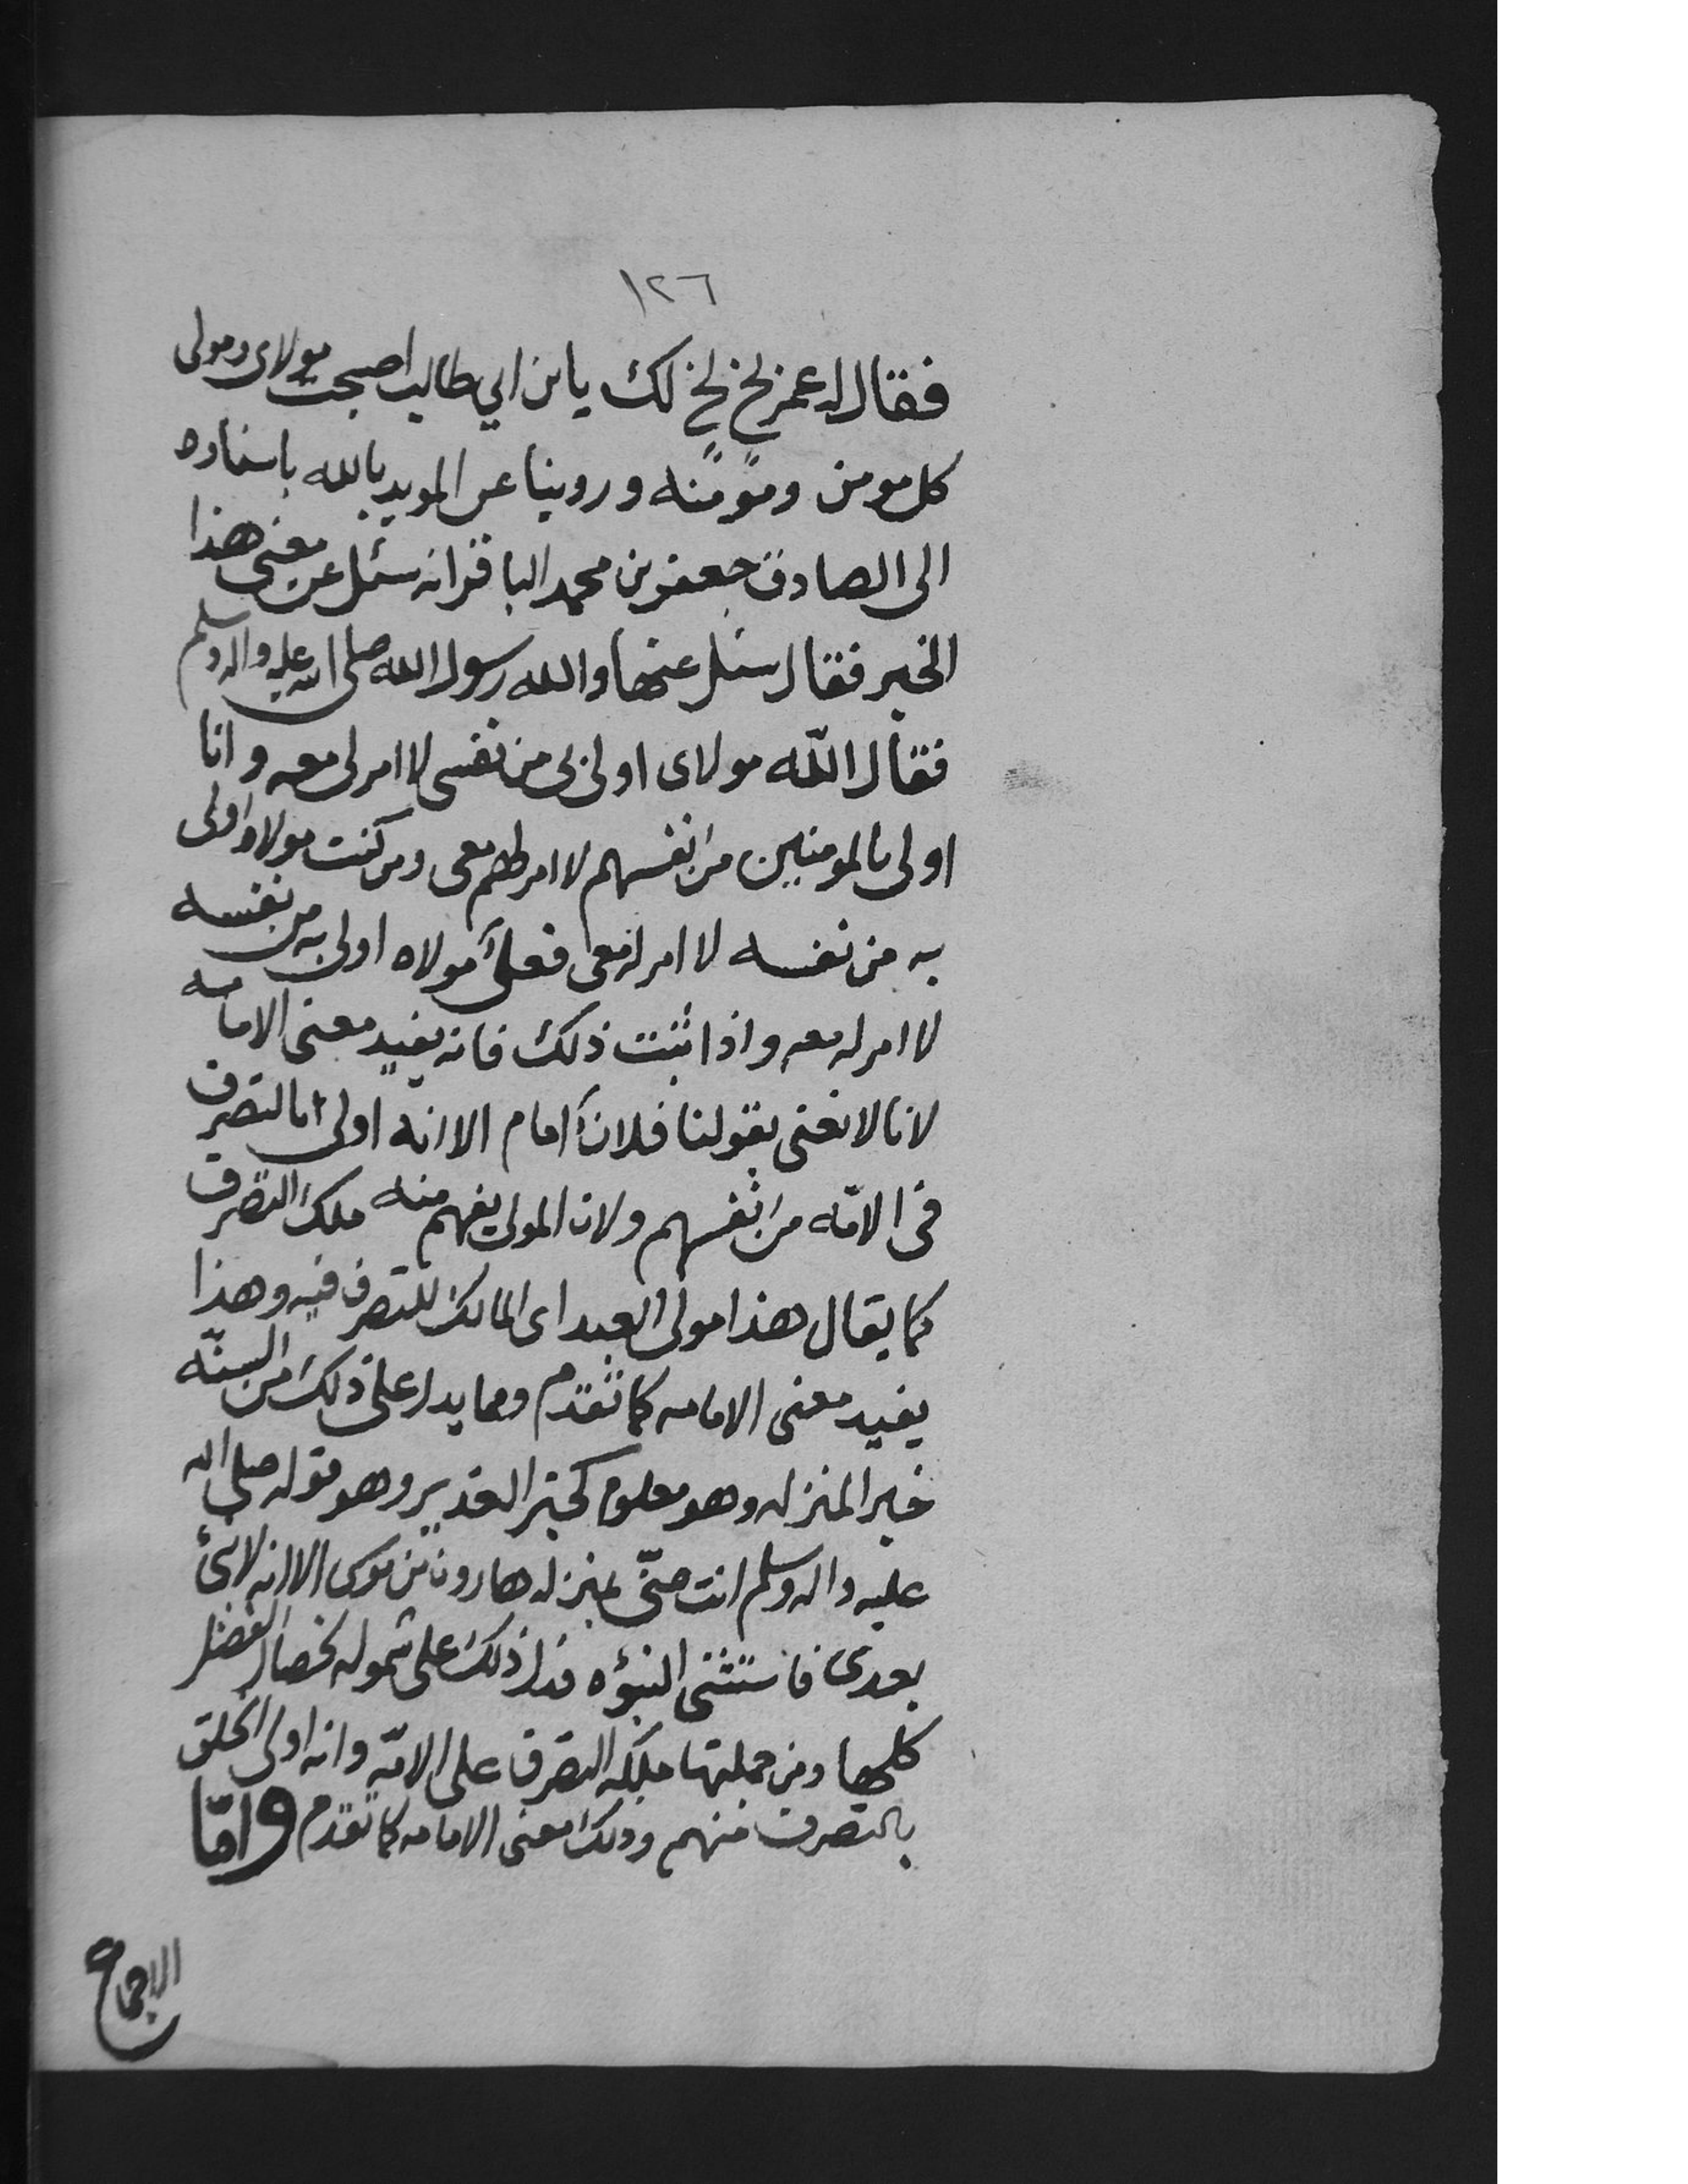 ١٢٦
فقال له عمر بخ بخ لك يابن ابي طالب اصبحت مولاى ومولى
كل مومن ومومنه وروينا عن المويد بالله باسناده
الى الصادق جعفر بن محمد الباقر انه سئل عن معنى هذا
الخبر فقال سئل عنها والله رسول الله صلى الله عليه واله وسلم
فقال الله مولاى اولى بى من نفسى لا امر لى معه وانا
اولى بالمومنين من انفسهم لا امر لهم معى ومن كنت مولاه اولى
به من نفسه لا امر له معى فعلى مولاه اولى به من نفسه
لا امر له معه واذا ثبت ذلك فانه يفيد معنى الامامه
لانا لا نعنى بقولنا فلان امام الا انه اولى بالتصرف
فى الامّه من انفسهم ولان المولى يفهم منه ملك التصرف
كما يقال هذا مولى العبد اى المالك للتصرف فيه وهذا
يفيد معنى الامامه كما تقدم ومما يدل على ذلك من السنّه
خبر المنزله وهو معلوم كخبر الغدير وهو قوله صلى الله
عليه واله وسلم انت منّى بمنزله هارون من موسى الا انه لا نبئ
بعدى فاستثنى النبؤه فدل ذلك على شموله لخصال الفضل
كلها ومن جملتها ملكه التصرف على الامّه وانه اولى الخلق
بالتصرف منهم وذلك معنى الامامه كما تقدم وامّا
الاجماع